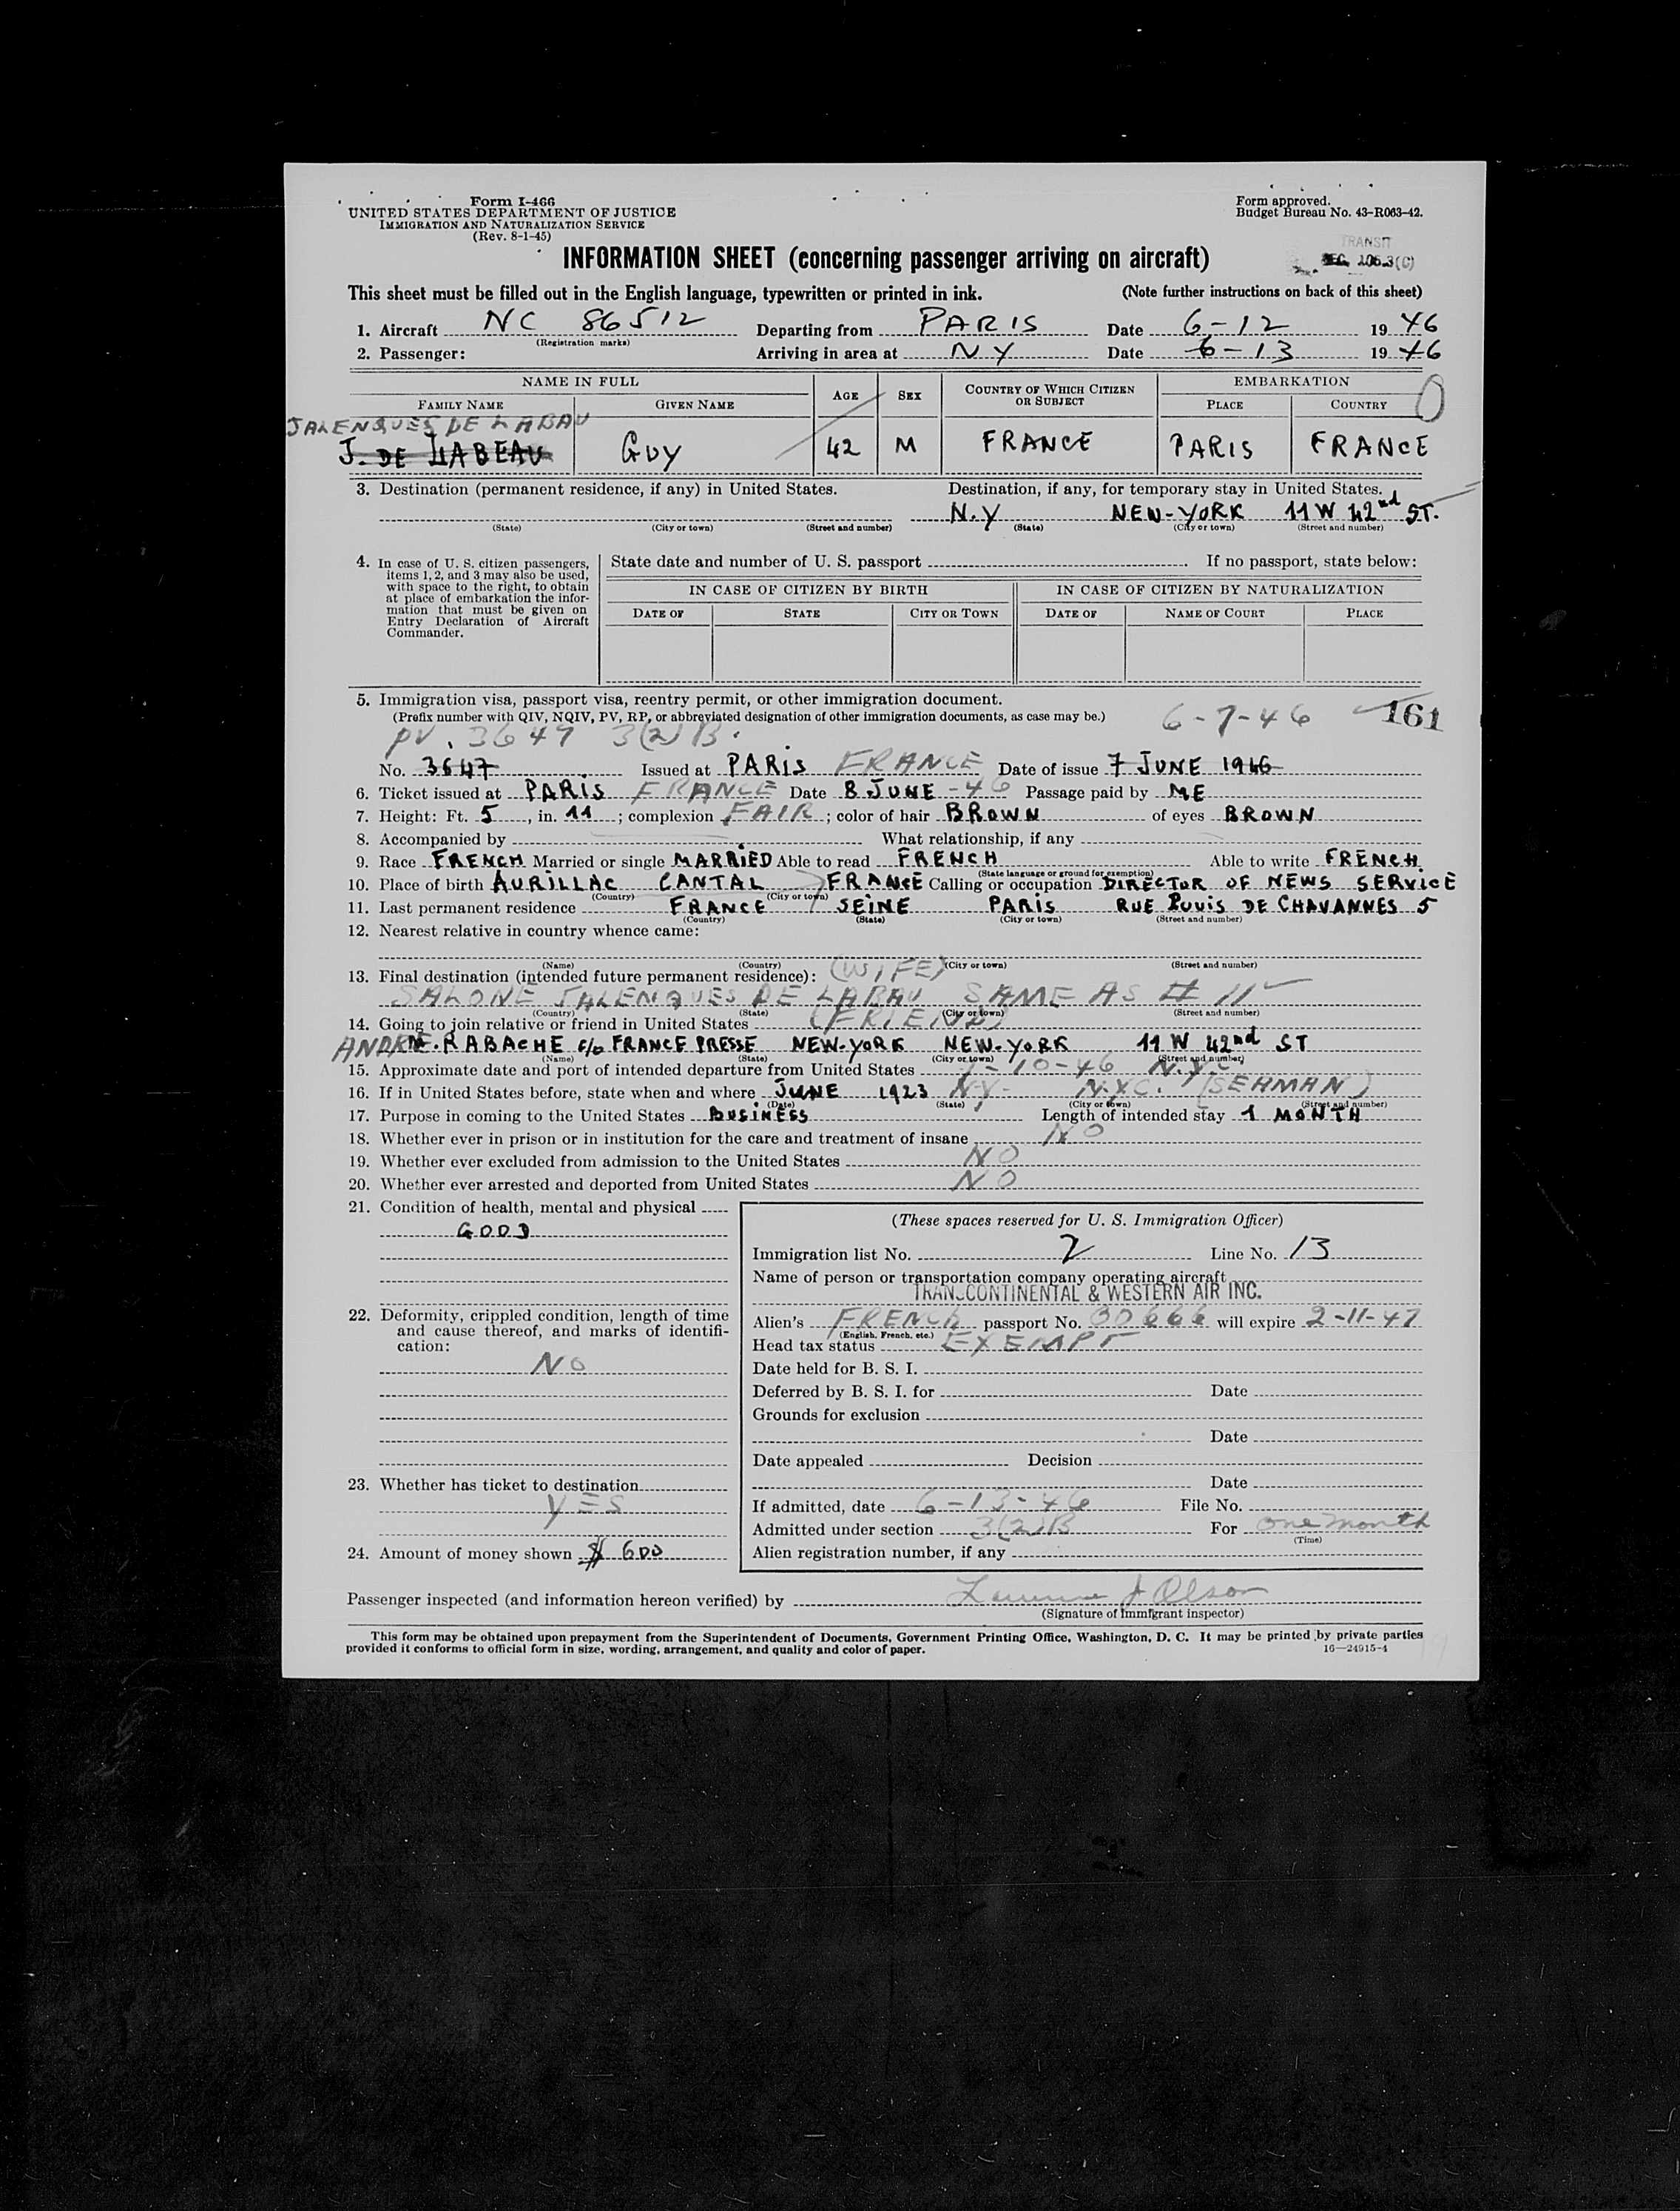 Form I-466
UNITED STATES DEPARTMENT OF JUSTICE
IMMIGRATION AND NATURALIZATION SERVICE
(Rev. 8-1-45)
Form approved.
Budget Bureau No. 43-R063-42.
INFORMATION SHEET (concerning passenger arriving on aircraft)
TRANSIT
SEC. 105.3(C)
This sheet must be filled out in the English language, typewritten or printed in ink. (Note further instructions on back of this sheet)
1. Aircraft NC 86512 Departing from PARIS Date 6-12 19 46
(Registration marks)
2. Passenger: Arriving in area at NY Date 6-13 19 46
NAME IN FULL AGE SEX COUNTRY OF WHICH CITIZEN OR SUBJECT EMBARKATION
FAMILY NAME GIVEN NAME PLACE COUNTRY
JALENQUES DE LABAU
J. DE LABEAU GUY 42 M FRANCE PARIS FRANCE
3. Destination (permanent residence, if any) in United States. Destination, if any, for temporary stay in United States.
N.Y NEW-YORK 11 W 42nd ST.
(State) (City or town) (Street and number) (State) (City or town) (Street and number)
4. In case of U. S. citizen passengers, items 1, 2, and 3 may also be used, with space to the right, to obtain at place of embarkation the information that must be given on Entry Declaration of Aircraft Commander.
State date and number of U. S. passport If no passport, state below:
IN CASE OF CITIZEN BY BIRTH IN CASE OF CITIZEN BY NATURALIZATION
DATE OF STATE CITY OR TOWN DATE OF NAME OF COURT PLACE
5. Immigration visa, passport visa, reentry permit, or other immigration document.
(Prefix number with QIV, NQIV, PV, RP, or abbreviated designation of other immigration documents, as case may be.) 6-7-46 161
PV. 3647 3(2)B.
No. 3647 Issued at PARIS FRANCE Date of issue 7 JUNE 1946
6. Ticket issued at PARIS FRANCE Date 8 JUNE -46 Passage paid by ME
7. Height: Ft. 5, in. 11; complexion FAIR; color of hair BROWN of eyes BROWN
8. Accompanied by What relationship, if any
9. Race FRENCH Married or single MARRIED Able to read FRENCH Able to write FRENCH
(State language or ground for exemption)
10. Place of birth AURILLAC CANTAL FRANCE Calling or occupation DIRECTOR OF NEWS SERVICE
(Country) (City or town)
11. Last permanent residence FRANCE SEINE PARIS RUE PUVIS DE CHAVANNES 5
(Country) (State) (City or town) (Street and number)
12. Nearest relative in country whence came:
(Name) (Country) (City or town) (Street and number)
13. Final destination (intended future permanent residence): (WIFE)
SALONE JALENQUES DE LABAU SAME AS # 11
(Country) (State) (City or town) (Street and number)
14. Going to join relative or friend in United States (FRIEND)
ANDRE. RABACHE c/o FRANCE PRESSE NEW-YORK NEW-YORK 11 W 42nd ST
(Name) (State) (City or town) (Street and number)
15. Approximate date and port of intended departure from United States 7-10-46 N.Y.C.
16. If in United States before, state when and where JUNE 1923 N.Y. N.Y.C. (SEAMAN)
(Date) (State) (City or town) (Street and number)
17. Purpose in coming to the United States BUSINESS Length of intended stay 1 MONTH
18. Whether ever in prison or in institution for the care and treatment of insane NO
19. Whether ever excluded from admission to the United States NO
20. Whether ever arrested and deported from United States NO
21. Condition of health, mental and physical
GOOD
22. Deformity, crippled condition, length of time and cause thereof, and marks of identification:
NO
23. Whether has ticket to destination
YES
24. Amount of money shown $ 600
(These spaces reserved for U. S. Immigration Officer)
Immigration list No. 2 Line No. 13
Name of person or transportation company operating aircraft
TRANSCONTINENTAL & WESTERN AIR INC.
Alien's FRENCH passport No. 00666 will expire 2-11-47
(English, French, etc.)
Head tax status EXEMPT
Date held for B. S. I.
Deferred by B. S. I. for Date
Grounds for exclusion
Date
Date appealed Decision
Date
If admitted, date 6-13-46 File No.
Admitted under section 3(2)B For one month
(Time)
Alien registration number, if any
Passenger inspected (and information hereon verified) by J Olson
(Signature of immigrant inspector)
This form may be obtained upon prepayment from the Superintendent of Documents, Government Printing Office, Washington, D. C. It may be printed by private parties
provided it conforms to official form in size, wording, arrangement, and quality and color of paper. 16—24915-4